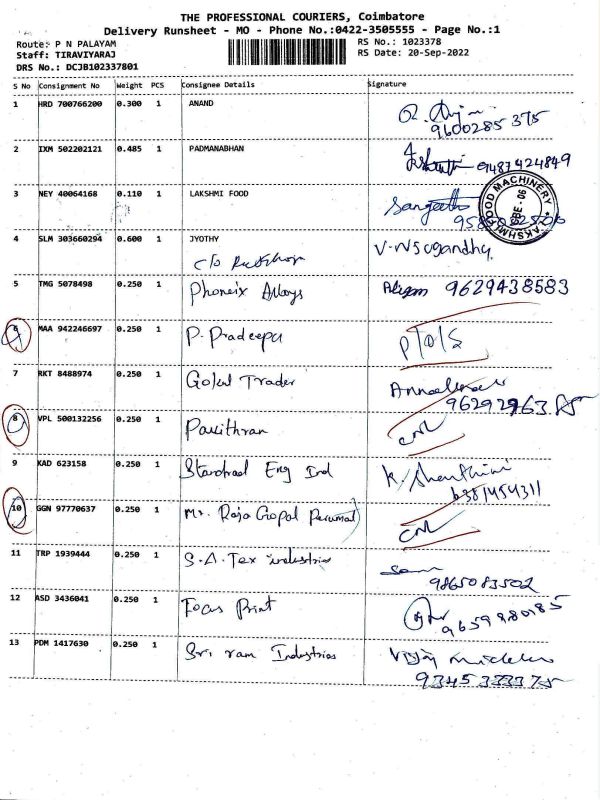 THE PROFESSIONAL COURIERS, Coimbatore
Delivery Runsheet - MO - Phone No.:0422-3505555 - Page No.:1
Route: P N PALAYAM RS No.: 1023378
Staff: TIRAVIYARAJ RS Date: 20-Sep-2022
DRS No.: DCJB102337801
S No Consignment No Weight PCS Consignee Details Signature
1 HRD 700766200 0.300 1 ANAND
9600285 375
2 IXM 502202121 0.485 1 PADMANABHAN 9487424849
3 NEY 40064168 0.110 1 LAKSHMI FOOD Sangeetha
LAKSHMI FOOD MACHINERY
4 SLM 303660294 0.600 1 JYOTHY
c/o V.N Sugandhy
5 TMG 5078498 0.250 1 Phoneix Alloys 9629438583
6 MAA 942246697 0.250 1 P. Pradeepa P/O/S
7 RKT 8488974 0.250 1 Gokul Trader
8 VPL 500132256 0.250 1 Pavithran CNL
9 KAD 623158 0.250 1 Standard Eng Ind K. Shanthini
6381454311
10 GGN 97770637 0.250 1 Mr. Raja Gopal Perumal CNL
11 TRP 1939444 0.250 1 S.A. Tex industries
9865083502
12 ASD 3436041 0.250 1 Focus Print
9659880185
13 PDM 1417630 0.250 1 Sri ram Industries Vijay
9345333375